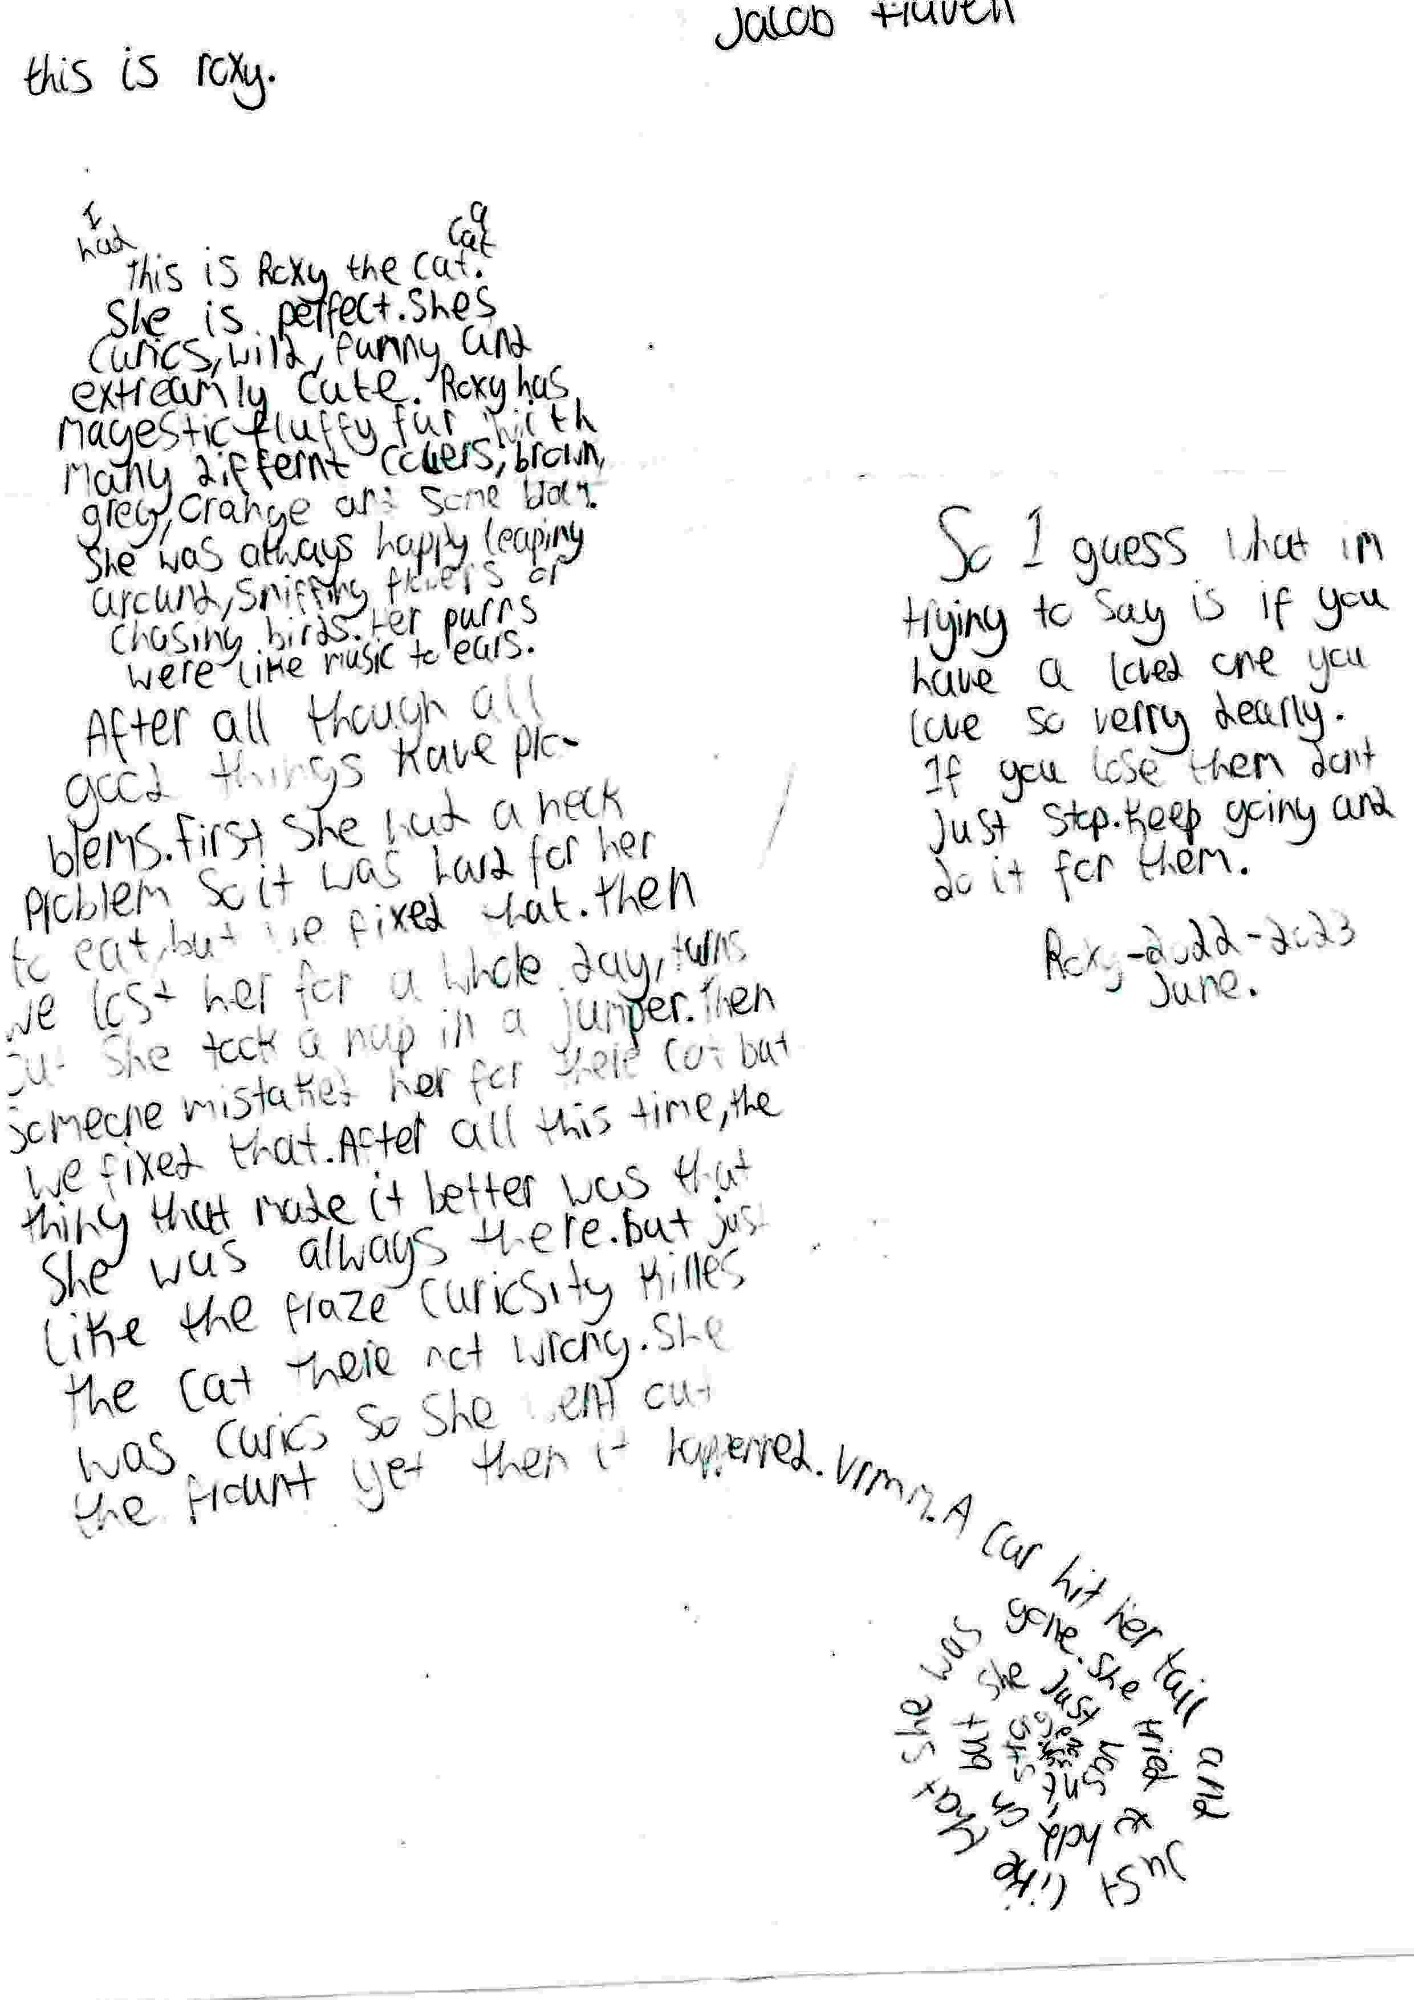 Jacob Haven
this is roxy.
I
had
a
Cat
this is Roxy the cat.
She is perfect. Shes
curics, wild, funny and
extreamly cute. Roxy has
magestic fluffy fur with
many differnt colers, brown,
grey, orange and some black.
She was always happy leaping
around, sniffing flowers or
chasing birds. Her purrs
were like music to ears.
After all though all
good things have pro-
blems. First she had a neck
problem so it was hard for her
to eat, but we fixed that. then
we lost her for a whole day, turns
out she took a nap in a jumper. Then
someone mistaked her for there cat but
we fixed that. After all this time, the
thing that made it better was that
She was always there. But just
like the fraze curiosity killes
the cat there not wrong. She
was curics so she went out
the frount yet then it happenned. Vrmm. A car hit her tail and
just like that she was gone. She tried to hold on but she just wasnt
So I guess what im
trying to say is if you
have a loved one you
love so verry dearly.
If you lose them dont
just stop. Keep going and
do it for them.
Roxy-2022-2023
June.